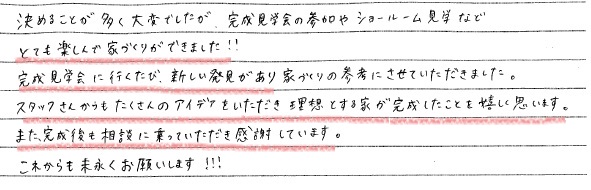 決めることが多く大変でしたが、完成見学会の参加やショールーム見学など
とても楽しんで家づくりができました!!
完成見学会に行くたび、新しい発見があり家づくりの参考にさせていただきました。
スタッフさんからもたくさんのアイデアをいただき理想とする家が完成したことを嬉しく思います。
また、完成後も相談に乗っていただき感謝しています。
これからも末永くお願いします!!!